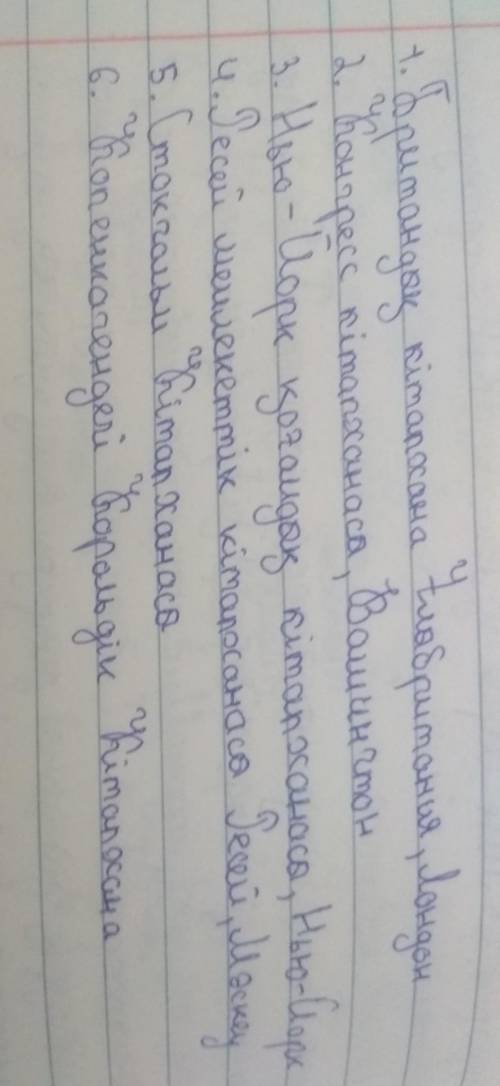 1. Британдық кітапхана Ұлабритания, Лондон
2. Конгресс кітапханасы, Вашингтон
3. Нью-Йорк қоғамдық кітапханасы, Нью-Йорк
4. Ресей мемлекеттік кітапханасы Ресей, Мәскеу
5. Стокгольм Кітапханасы
6. Копенгагендегі Корольдік Кітапхана